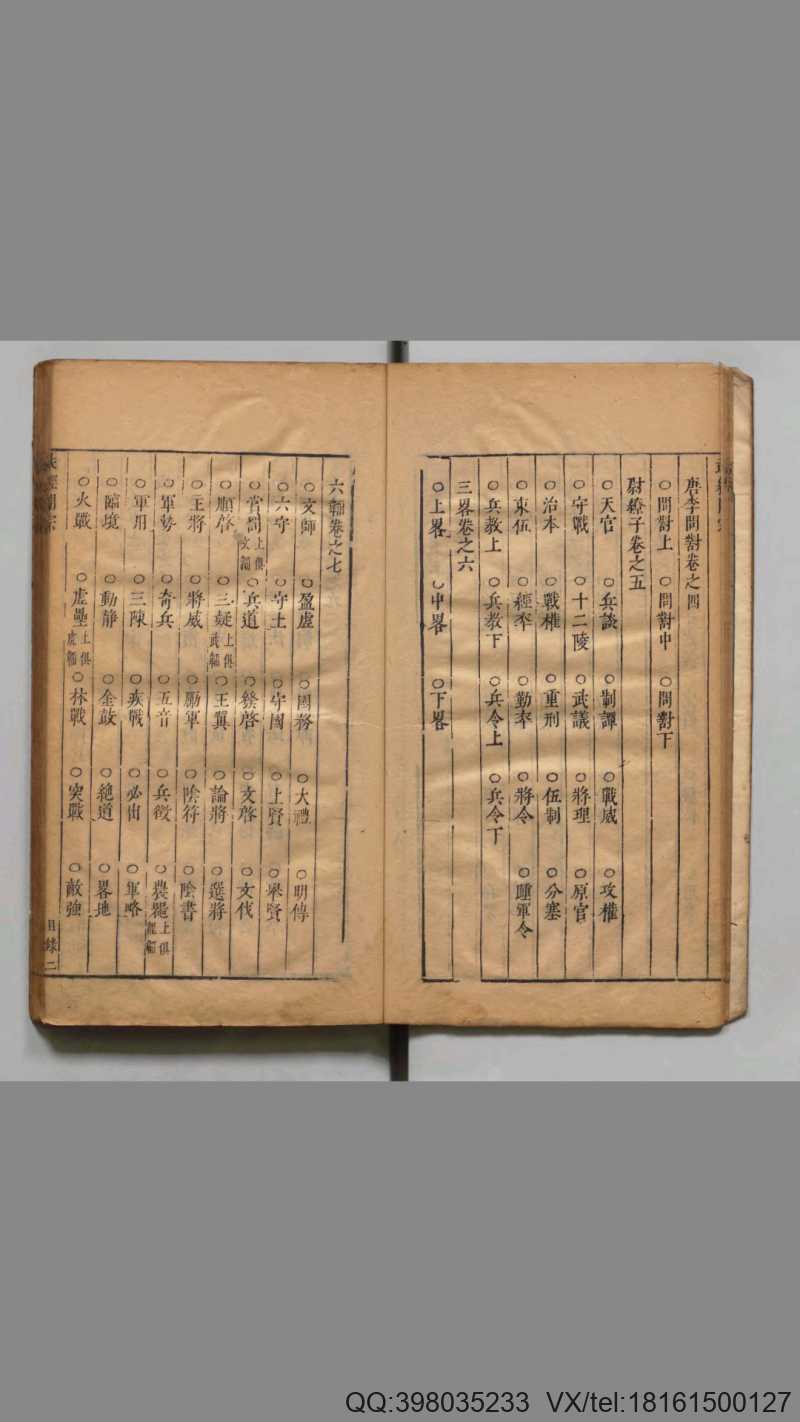 唐李問對卷之四
○問對上 ○問對中 ○問對下
尉繚子卷之五
○天官 ○兵談 ○制譚 ○戰威 ○攻權
○守戰 ○十二陵 ○武議 ○將理 ○原官
○治本 ○戰權 ○重刑 ○伍制 ○分塞
○束伍 ○經卒 ○勤卒 ○將令 ○踵軍令
○兵教上 ○兵教下 ○兵令上 ○兵令下
三畧卷之六
○上畧 ○中畧 ○下畧
六韜卷之七
○文師 ○盈虛 ○國務 ○大禮 ○明傳
○六守 ○守土 ○守國 ○上賢 ○舉賢
○賞罰上俱文韜 ○兵道 ○發啓 ○文啓 ○文伐
○順啓 ○三疑上俱武韜 ○王翼 ○論將 ○選將
○主將 ○將威 ○勵軍 ○陰符 ○陰書
○軍勢 ○奇兵 ○五音 ○兵徵 ○農器上俱龍韜
○軍用 ○三陳 ○疾戰 ○必出 ○軍略
○臨境 ○動靜 ○金鼓 ○絕道 ○畧地
○火戰 ○虛壘上俱虎韜 ○林戰 ○突戰 ○敵強
目錄 二
QQ:398035233 VX/tel:18161500127